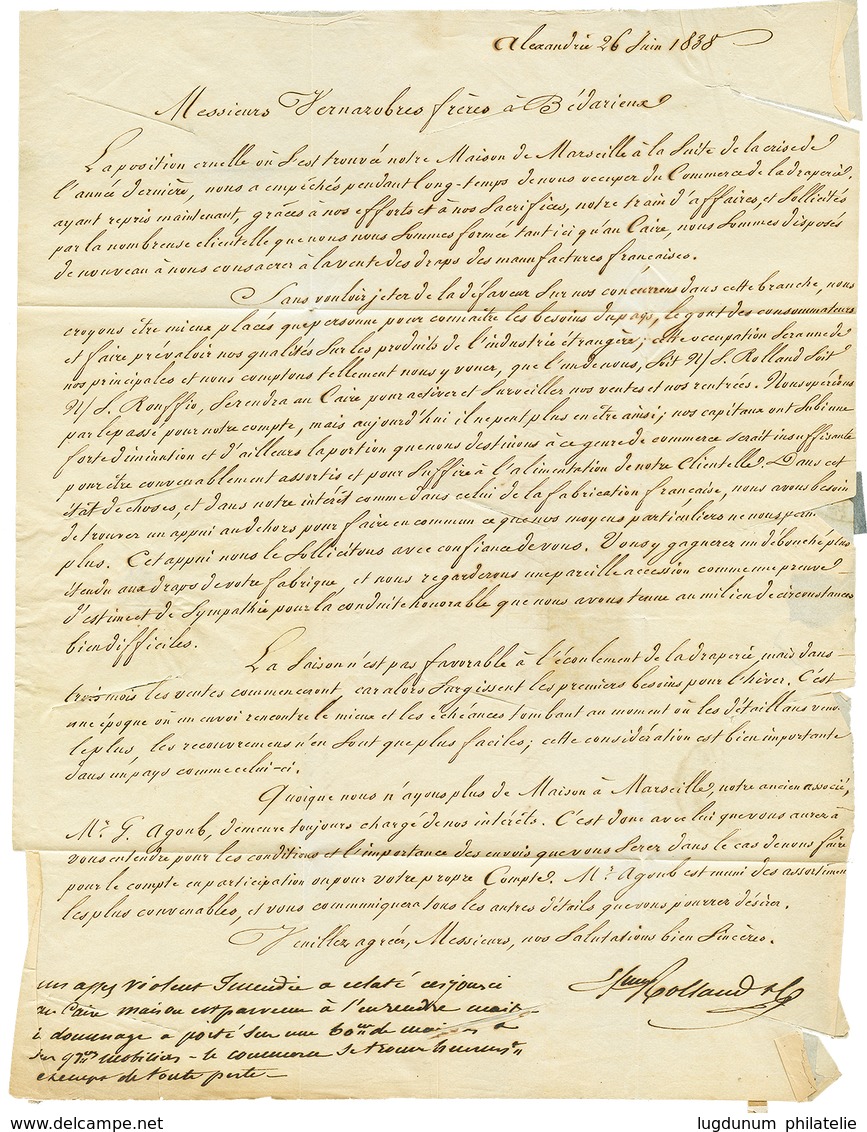 Alexandrie 26 Juin 1838
Messieurs Vernazobres frères à Bédarieux
La position cruelle où s'est trouvée notre Maison de Marseille à la Suite de la crise de
l'année dernière, nous a empêchés pendant long-temps de nous occuper du Commerce de la draperie.
ayant repris maintenant, grâces à nos efforts et à nos Sacrifices, notre train d'affaires, et Sollicités
par la nombreuse clientelle que nous nous Sommes formée tant ici qu'au Caire, nous Sommes disposés
de nouveau à nous consacrer à la vente des draps des manufactures françaises.
Sans vouloir jeter de la défaveur Sur nos concurrens dans cette branche, nous
croyons être mieux placés que personne pour connaître les besoins du pays, le goût des consommateurs
et faire prévaloir nos qualités Sur les produits de l'industrie étrangère; cette occupation Sera une de
nos principales et nous comptons tellement nous y vouer, que l'un de nous, Soit N/ S. Rolland Soit
N/ S. Rouffio, Se rendra au Caire pour activer et Surveiller nos ventes et nos rentrées. Nous opérions
par le passé pour notre compte, mais aujourd'hui il ne peut plus en être ainsi; nos capitaux ont Subi une
forte diminution et d'ailleurs la portion que nous destinons à ce genre de commerce serait insuffisante
pour être convenablement assortis et pour Suffire à l'alimentation de notre Clientelle. Dans cet
état de choses, et dans notre intérêt comme dans celui de la fabrication française, nous avons besoin
de trouver un appui au dehors pour faire en commun ce que nos moyens particuliers ne nous
plus. Cet appui nous le Sollicitons avec confiance de vous. Vous y gagnerez un débouché plus
étendu aux draps de votre fabrique, et nous regarderons une pareille accession comme une preuve
d'estime et de Sympathie pour la conduite honorable que nous avons tenue au milieu de circonstances
bien difficiles.
La Saison n'est pas favorable à l'écoulement de la draperie, mais dans
trois mois les ventes commenceront, car alors Surgissent les premiers besoins pour l'hiver. C'est
une époque où un envoi rencontre le mieux et les échéances tombant au moment où les détaillans
le plus, les recouvremens n'en Sont que plus faciles; cette considération est bien importante
dans un pays comme celui-ci.
Quoique nous n'ayons plus de Maison à Marseille, notre ancien associé,
Mr. G. Agoub, demeure toujours chargé de nos intérêts. C'est donc avec lui que vous aurez à
vous entendre pour les conditions et l'importance des envois que vous Serez dans le cas de nous faire
pour le compte en participation ou pour votre propre Compte. Mr. Agoub est muni des assortimen
les plus convenables, et vous communiquera tous les autres détails que vous pourrez désirer.
Veuillez agréer, Messieurs, nos Salutations bien Sincères.
Rolland & C
un assez violent Incendie a eclaté ces jours ci
au Caire maison est parvenu à l'
dommage a porté sur une
mobiliers - le commerce Se trouve
de toute perte -
lugdunum philatelie